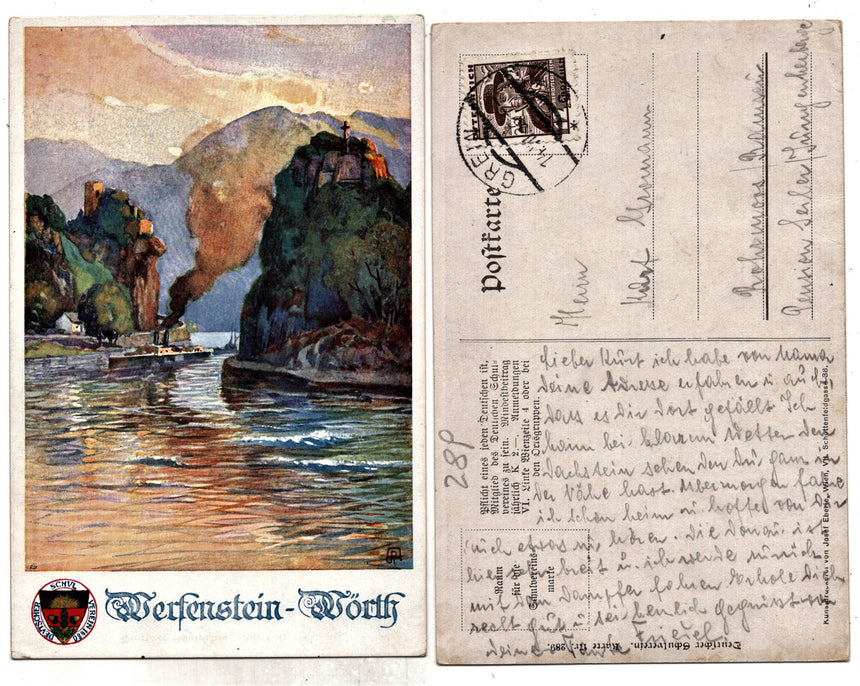 DEUTSCHER SCHULVEREIN
Werfenstein-Wörth
Postkarte
GREIN
Herrn
Kurt
Pension Seiler
Pflicht eines jeden Deutschen ist,
Mitglied des Deutschen Schul-
vereines zu sein. Mindestbeitrag
jährlich K 2.—. Anmeldungen
VI. Linke Wienzeile 4 oder bei
den Ortsgruppen.
Raum
für die
Schulvereins-
marke
289
Lieber Kurt ich habe von Mama
deine Adresse erfahren u. auch
dass es dir dort gefällt Ich
kann bei klarem Wetter den
Dachstein sehen den Du ganz in
der Nähe hast. Übermorgen fahre
ich schon heim u. hoffe von Dir
auch etwas zu hören. Die Donau ist
hier sehr breit u. ich werde zurück
mit dem Dampfer fahren Erhole dich
recht gut u. sei herzlich gegrüsst von
deine Tante
Deutscher Schulverein. Karte Nr. 289.
Kunstdruck von Josef Eberle, Wien, VII. Schottenfeldgasse 38.